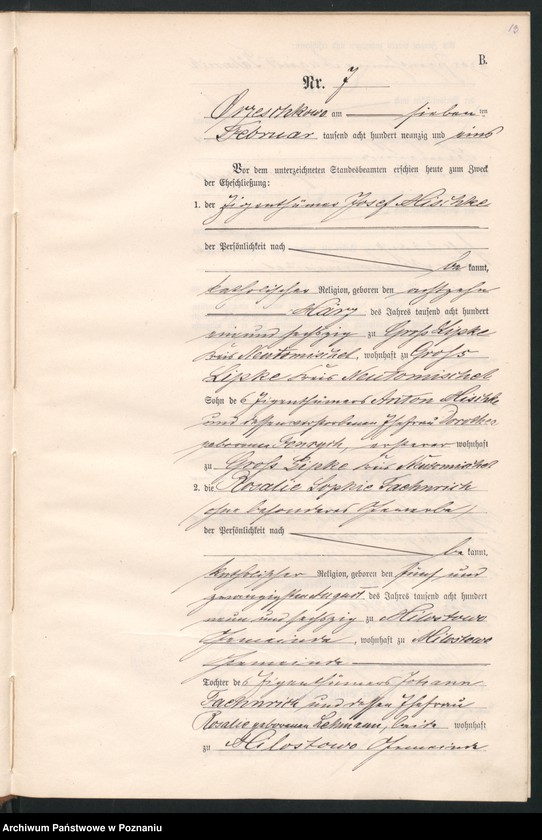 13
B.
Nr. 7
Orzeschkowo am sieben ten
Februar tausend acht hundert neunzig und eins
Vor dem unterzeichneten Standesbeamten erschien heute zum Zweck
der Eheschließung:
1. der Eigenthümer Josef Hischke
der Persönlichkeit nach
be kannt,
katholischer Religion, geboren den achtzehn
März des Jahres tausend acht hundert
ein und sechszig zu Groß Lipke
Kreis Neutomischel, wohnhaft zu Groß
Lipke Kreis Neutomischel
Sohn des Eigenthümers Anton Hischke
und dessen verstorbenen Ehefrau Dorothea
geborenen, ersterer wohnhaft
zu Groß Lipke Kreis Neutomischel
2. die Rosalie Sophie Fachnrich
ohne besonderes Gewerbe,
der Persönlichkeit nach
be kannt,
katholischer Religion, geboren den fünf und
zwanzigsten August des Jahres tausend acht hundert
neun und sechszig zu Milostowo
Gemeinde, wohnhaft zu Milostowo
Gemeinde
Tochter des Eigenthümers Johann
Fachnrich und dessen Ehefrau
Rosalie geborenen Lehmann, beide wohnhaft
zu Milostowo Gemeinde
Archiwum Państwowe w Poznaniu